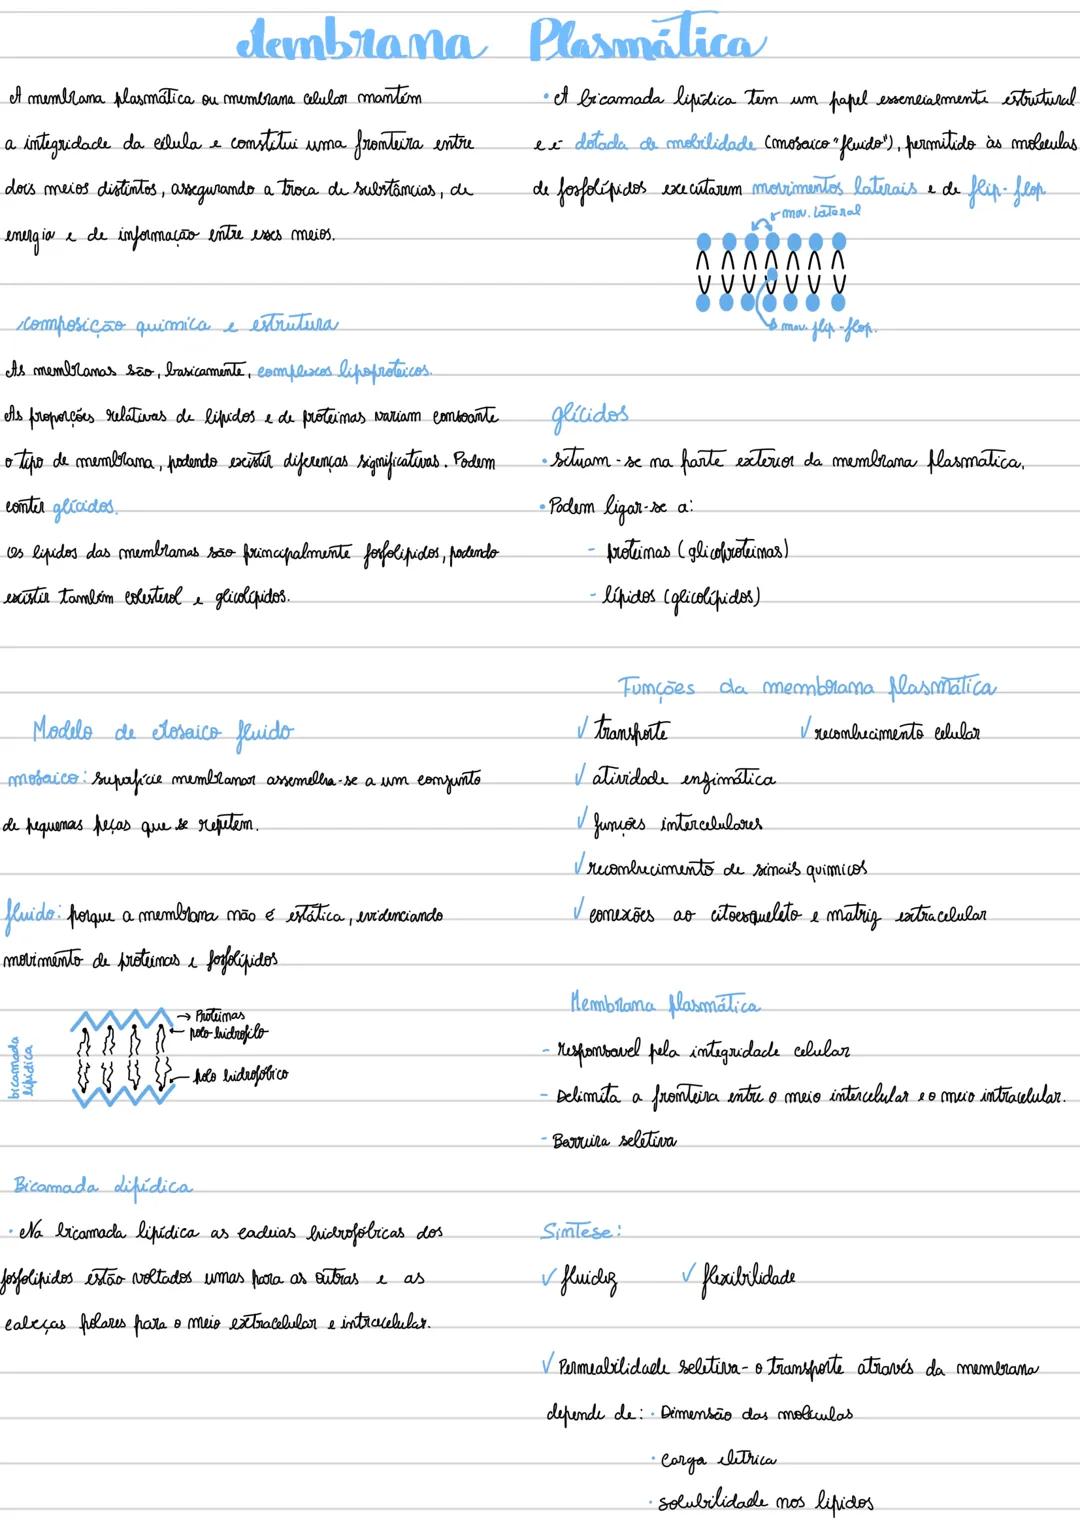 Membrana Plasmática
A membrana plasmática ou membrana celular mantém
a integridade da célula e constitui uma fronteira entre
dois meios distintos, assegurando a troca de substâncias, de
energia e de informação entre esses meios.
composição quimica e estrutura
As membranas são, basicamente, complexos lipoproteicos.
As proporções relativas de lipidos e de proteinas variam consoante
o tipo de membrana, podendo existir diferenças significativas. Podem
conter glicidos.
Os lipidos das membranas são principalmente fosfolipidos, podendo
existir também colesterol e glicolípidos.
Modelo de Mosaico fluido
mosaico: superfície membranar assemelha-se a um conjunto
de pequenas peças que se repetem.
fluido: porque a membrana não é estática, evidenciando
movimento de proteinas e fosfolípidos
bicamada
lipídica
→ Proteinas
polo hidrofílo
polo hidrofóbico
Bicamada Lipídica
• Na bicamada lipídica as cadeias hidrofóbricas dos
fosfolipidos estão voltados umas para as outras e as
cabeças polares para o meio extracelular e intracelular.
• A bicamada lipídica tem um papel essencialmente estrutural
e é dotada de mobilidade (mosaico "fluido"), permitido às moleculas
de fosfolípidos executarem movimentos laterais e de flip-flop
mov. lateral
mov. flip-flop.
glícidos
• situam-se na parte exterior da membrana plasmatica.
• Podem ligar-se a:
- proteinas (glicoproteinas)
- lípidos (glicolípidos)
Funções da membrana plasmática
√ transporte √ reconhecimento celular
√ atividade enzimática
√ funções intercelulares
√ reconhecimento de sinais quimicos
√ conexões ao citoesqueleto e matriz extracelular
Membrana plasmática
- responsavel pela integridade celular
- Delimita a fronteira entre o meio intercelular e o meio intracelular.
- Barreira seletiva
Sintese:
√ fluidez √ flexibilidade
√ Permeabilidade seletiva - o transporte através da membrana
depende de: • Dimensão das moleculas
• carga eletrica
• solubilidade nos lipidos